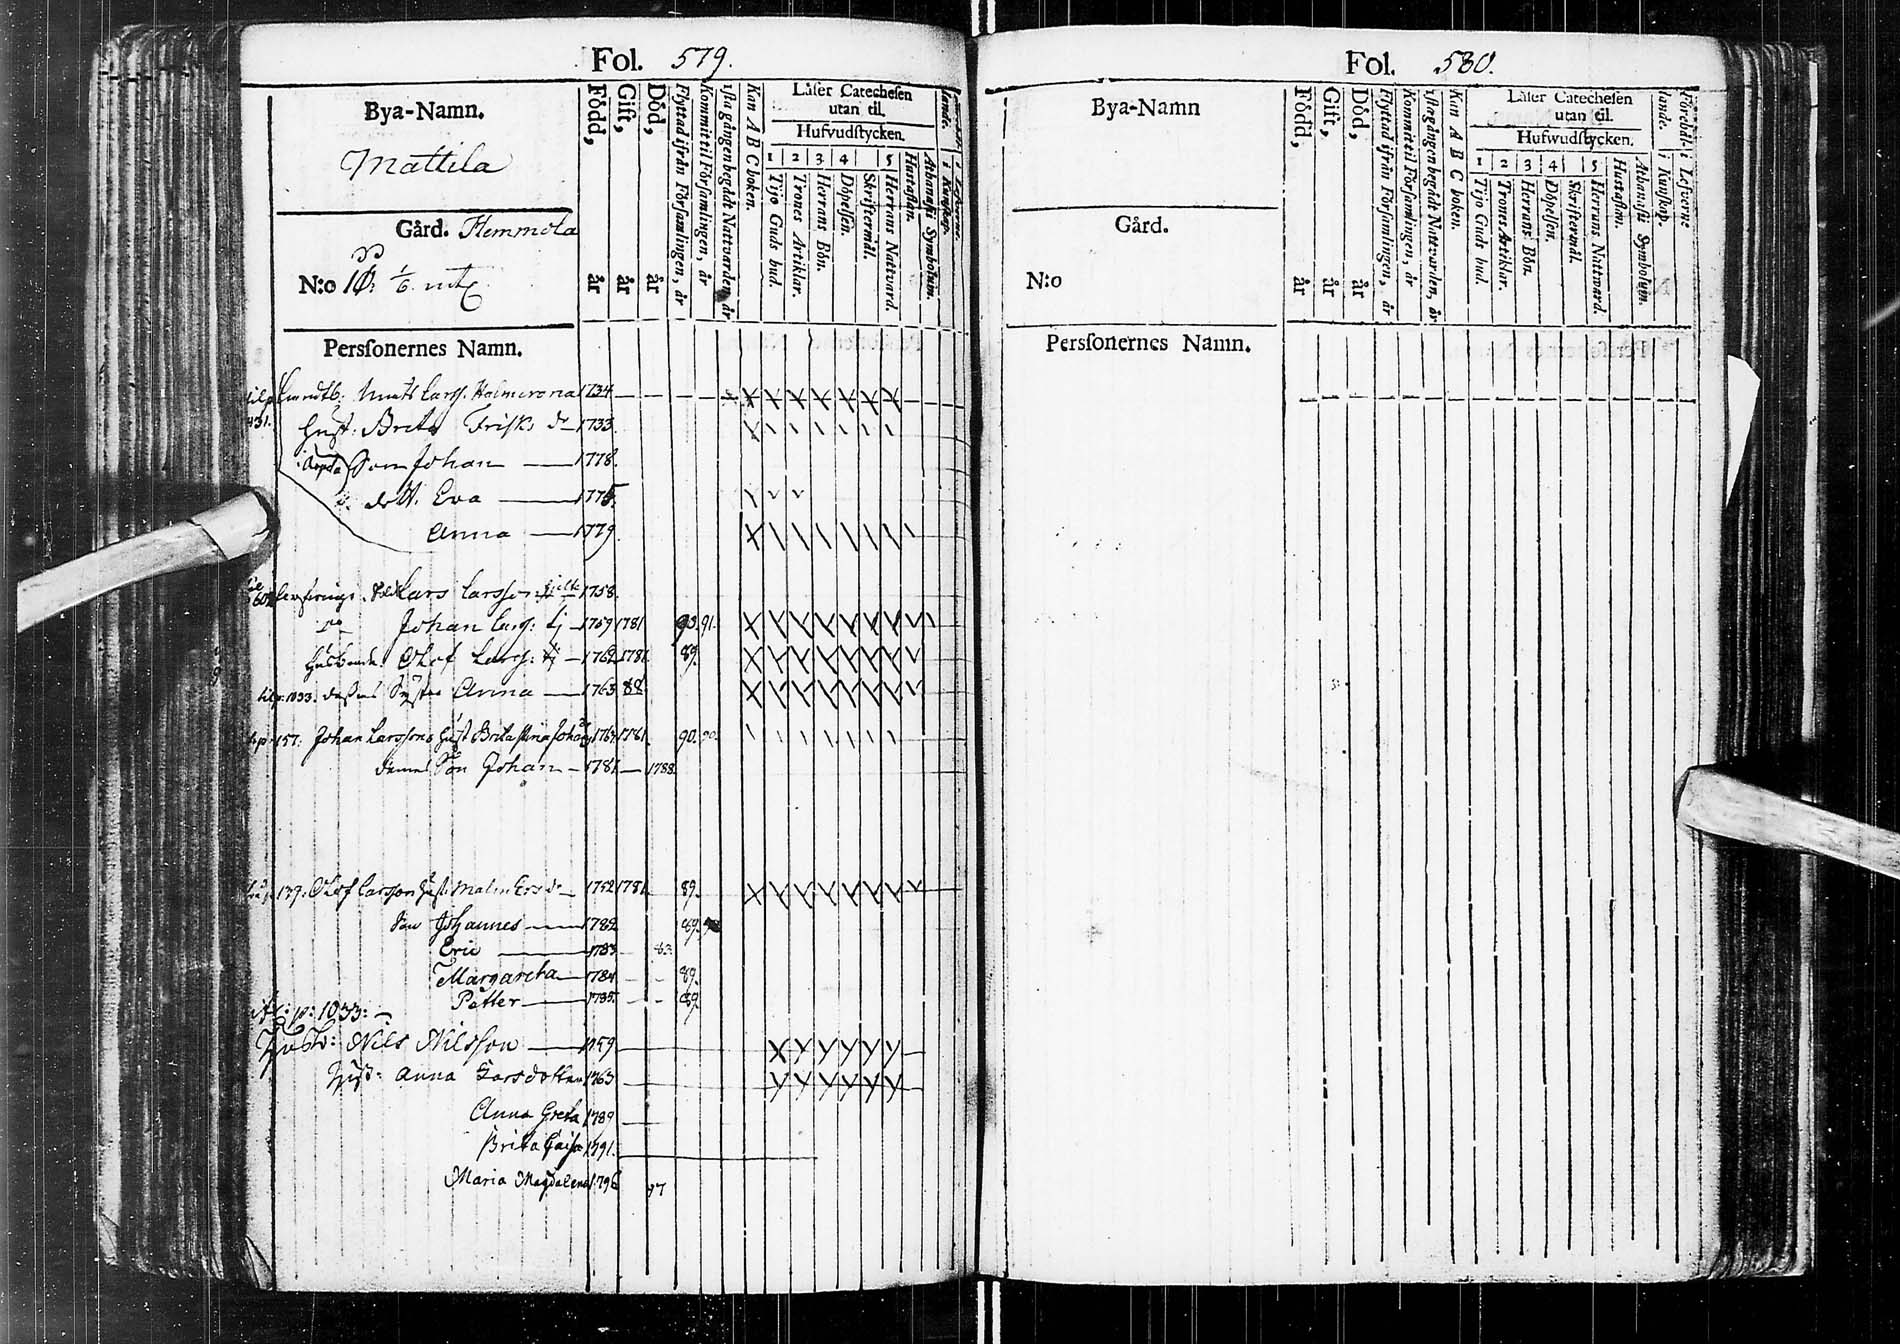 Fol. 579.
Bya-Namn.
Mattila
Gård. Hemmola
N:o
Född, år
Gift, år
Död, år
Flyttad ifrån Församlingen, år
Kommit til Församlingen, år
1sta gången begådt Nattvarden, år
Kan A B C boken.
Läser Catechesen
utan til.
Hufvudstycken.
1 2 3 4 5
Tijo Guds bud.
Trones Artiklar.
Herrans Bön.
Döpelsen.
Skriftermål.
Herrans Nattvard.
Hustaflan.
Athanasii Symbolum.
Perssonernes Namn.
Mats Larss. 1734
431. Hust: Brita Frisk 1733.
Son Johan 1778.
dott. Eva 1775.
Anna 1779.
Lars Larsson 1758.
Johan Larss: 1759 1781 90. 91.
Olof Larss: 1762 1781. 89.
p: 1033. Syster Anna 1763 88.
p: 157. Johan Larssons Hust Brita 1781. 90. 90.
Son Johan 1781 1788.
139. Olof Larsson Hust. Malin Ersdr 1752 1781. 89.
Son Johannes 1782 89.
Eric 1783 83.
Margareta 1784 89.
Petter 1785. 89.
p: 1033:
Nils Nilsson 1759
Hust: Anna Larsdotter 1763
Anna Greta 1789
Brita Caisa 1791.
Maria Magdalena 1796 97
Fol. 580.
Bya-Namn
Gård.
N:o
Född, år
Gift, år
Död, år
Flyttad ifrån Församlingen, år
Kommit til Församlingen, år
1sta gången begådt Nattvarden, år
Kan A B C boken.
Läser Catechesen
utan til.
Hufwudstycken.
1 2 3 4 5
Tijo Guds bud.
Trones Artiklar.
Herrans Bön.
Döpelsen.
Skriftermål.
Herrans Nattvard.
Hustaflan.
Athanasii Symbolum.
Perssonernes Namn.